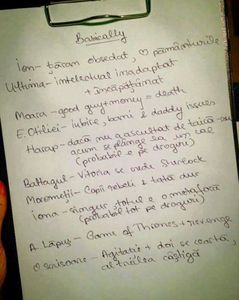 Basically
Ion - țăran obsedat, ♡ pământurile
Ultima - intelectual inadaptat
+ încăpățânat
Mara - good guy + money = death
E. Otiliei - iubire, bani & daddy issues
Harap - dacă nu a ascultat de taică-su
acum se plânge la un cal
(probabil e pe droguri)
Baltagul - Vitoria se crede Sherlock
Moromeții - Copii rebeli & tată dur
Iona - singur, totul e o metaforă
(probabil tot pe droguri)
A. Lăpuș - Game of Thrones + revenge
O scrisoare - Agitație + doi se ceartă,
al treilea câștigă